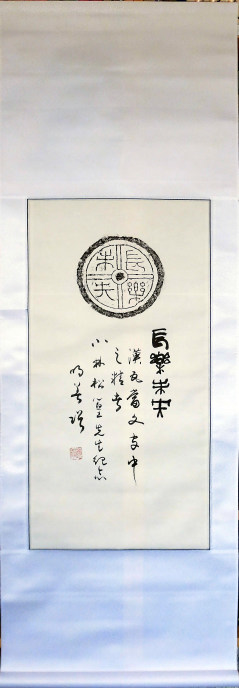 長樂未央
長樂未央
漢瓦當文字中
之精者
小林松篁先生紀念